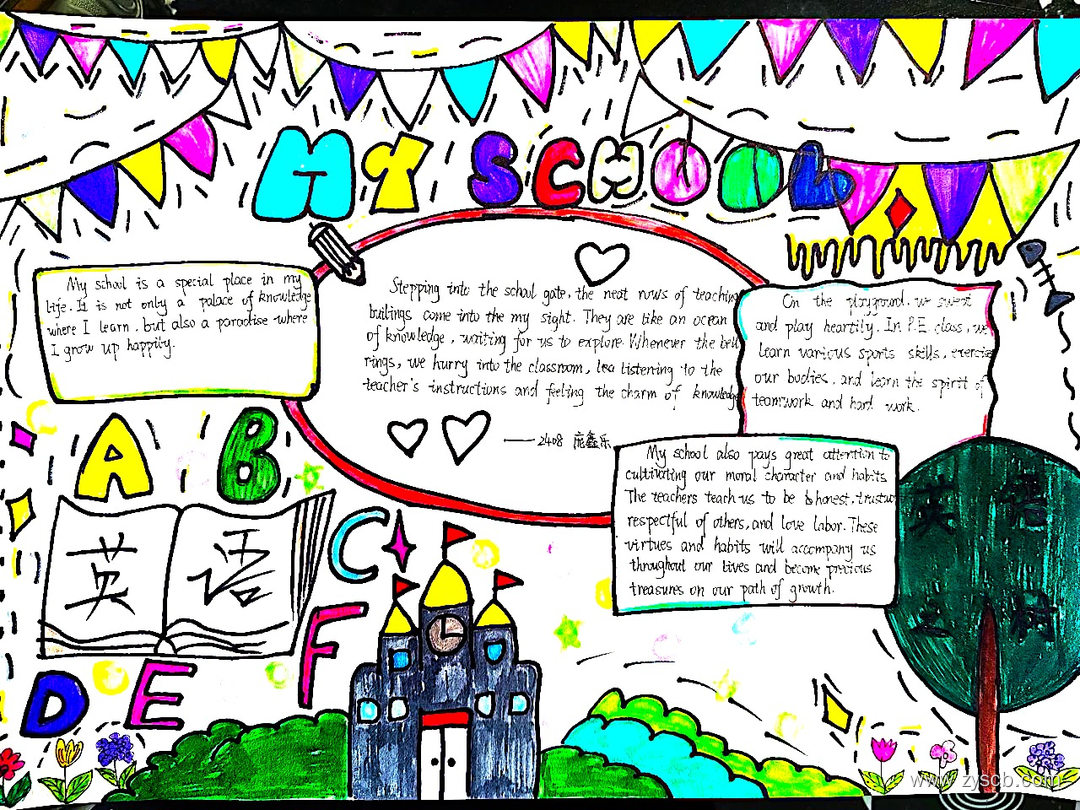 MY SCHOOL
My school is a special place in my
life. It is not only a palace of knowledge
where I learn, but also a paradise where
I grow up happily.
Stepping into the school gate, the neat rows of teaching
builings come into the my sight. They are like an ocean
of knowledge, waiting for us to explore. Whenever the bell
rings, we hurry into the classroom, lea listening to the
teacher's instructions and feeling the charm of knowledge
——2408
On the playground, we sweat
and play heartily. In P.E class, we
learn various sports skills, exercise
our bodies, and learn the spirit of
teamwork and hard work.
My school also pays great attention to
cultivating our moral character and habits.
The teachers teach us to be honest,
respectful of others, and love labor. These
virtues and habits will accompany us
throughout our lives and become precious
treasures on our path of growth.
A B
C
英 语
F
D E
英 语
之 树
www.zyscb.com